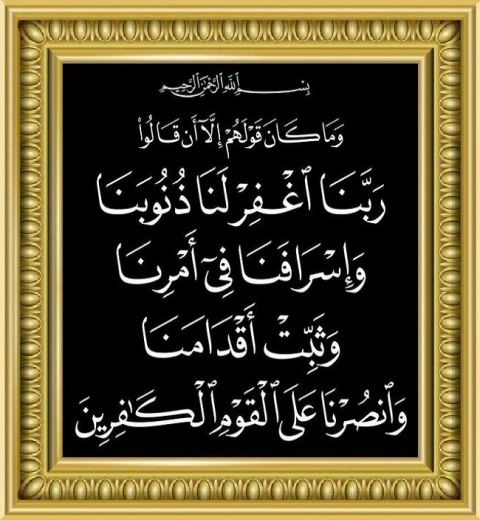 بِسْمِ ٱللَّهِ ٱلرَّحْمَٰنِ ٱلرَّحِيمِ
وَمَا كَانَ قَوْلَهُمْ إِلَّآ أَن قَالُوا۟
رَبَّنَا ٱغْفِرْ لَنَا ذُنُوبَنَا
وَإِسْرَافَنَا فِىٓ أَمْرِنَا
وَثَبِّتْ أَقْدَامَنَا
وَٱنصُرْنَا عَلَى ٱلْقَوْمِ ٱلْكَٰفِرِينَ